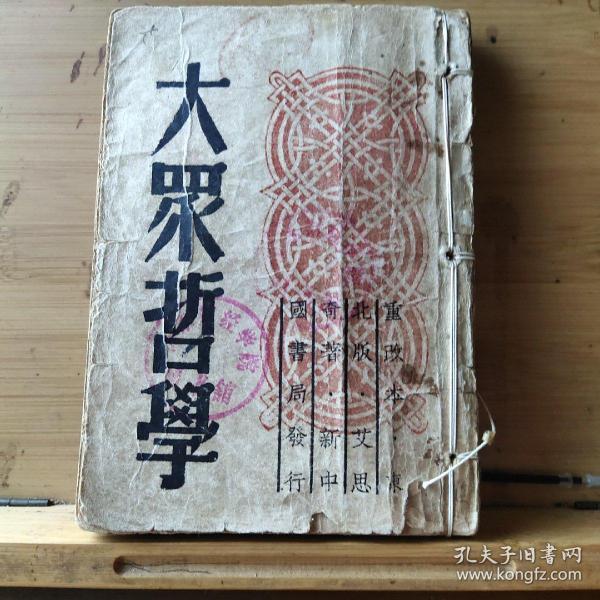 大眾哲學
重改本·東
北版·艾思
奇著·新中
國書局發行
孔夫子旧书网
www.kongfz.com